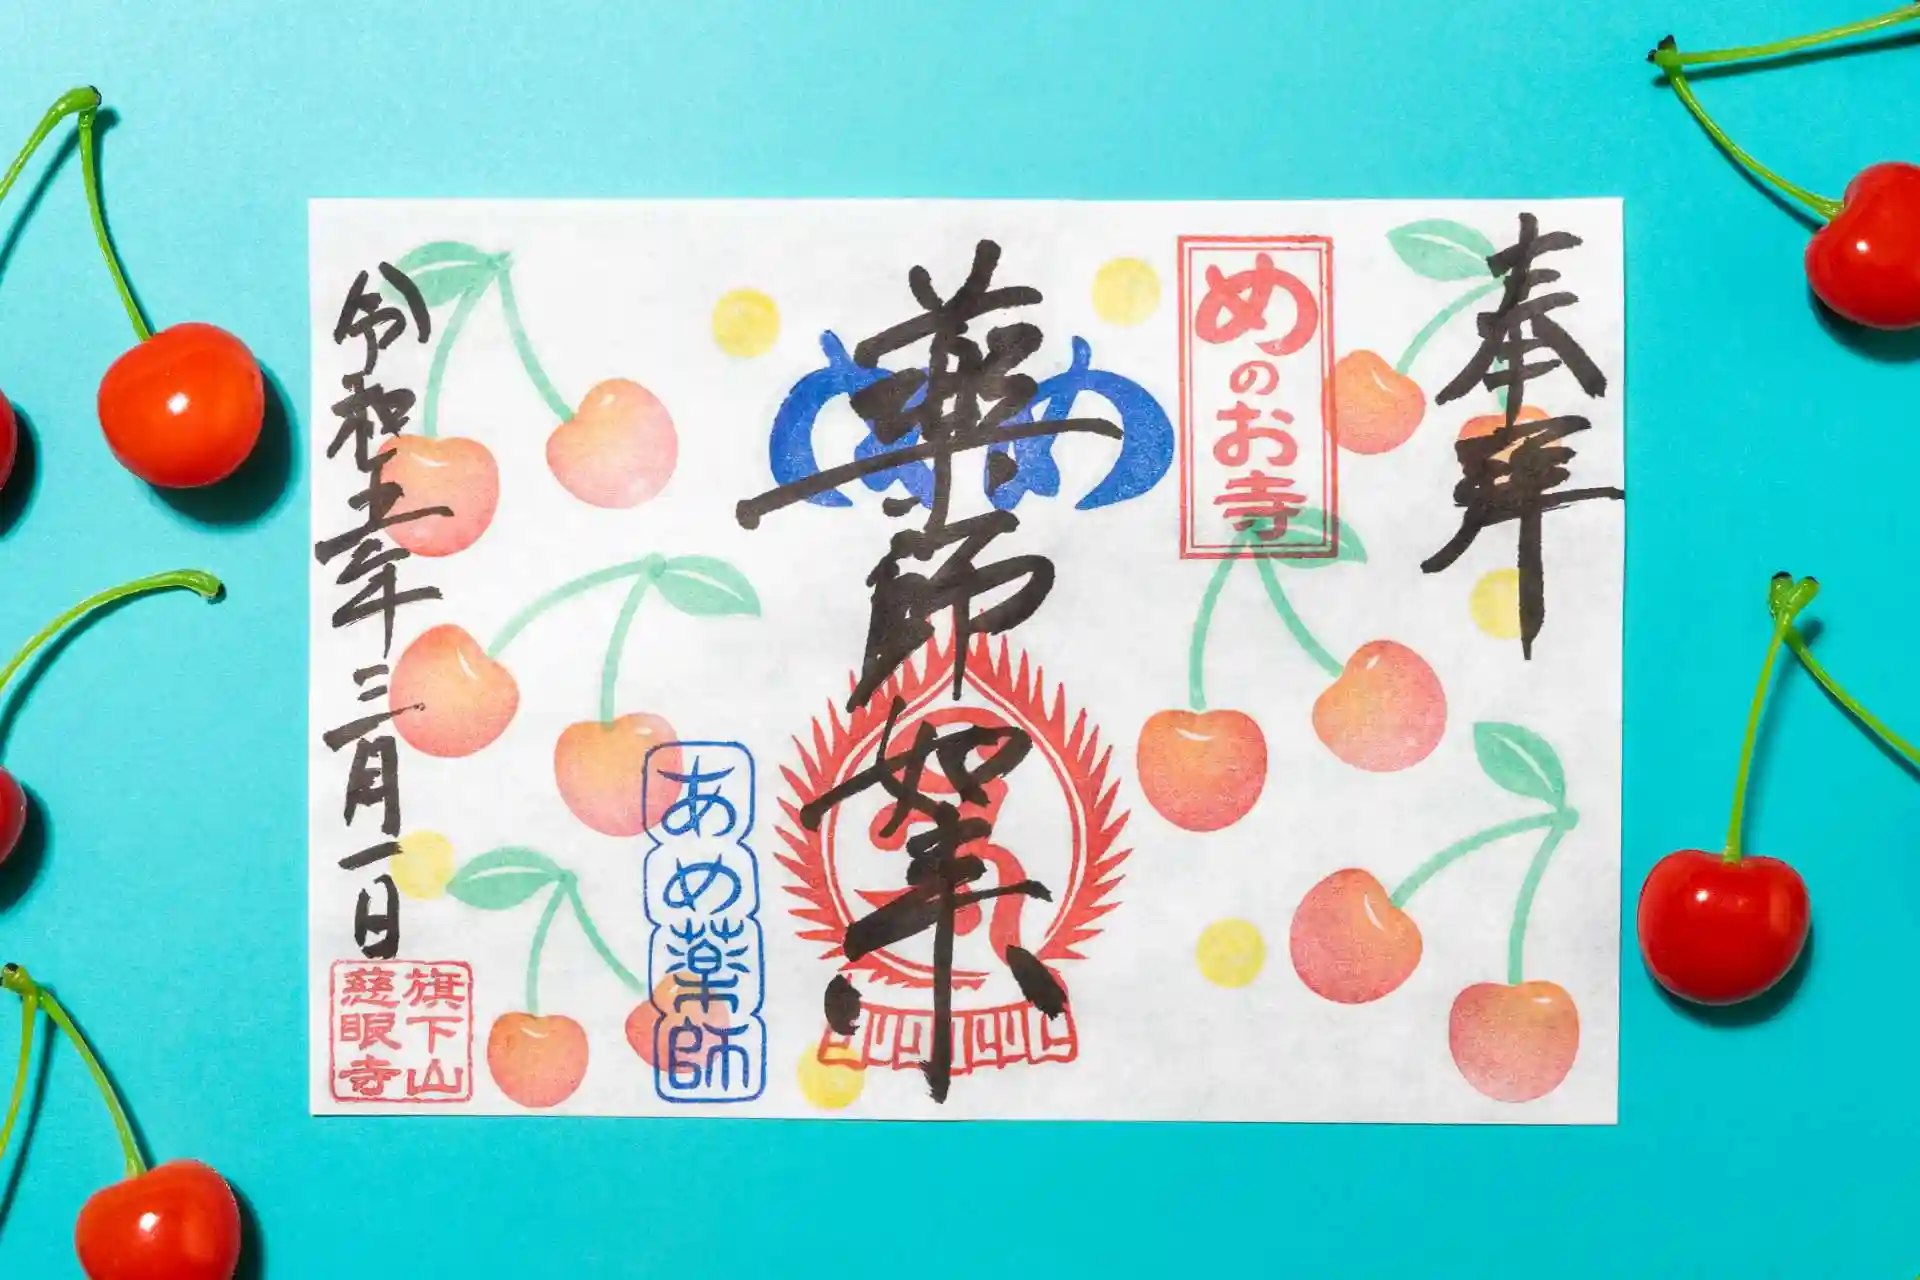 奉拝
めのお寺
めめ
薬師如来
あめ薬師
令和五年三月一日
旗下山
慈眼寺